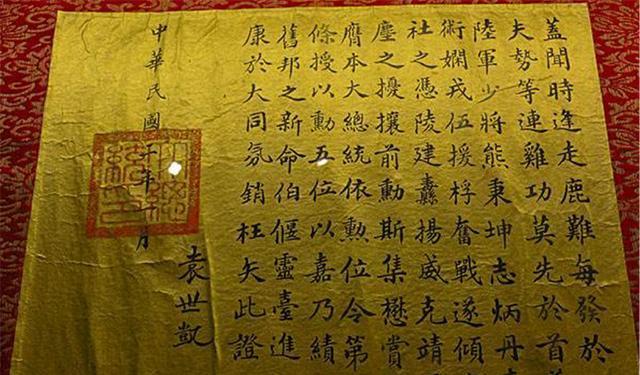 蓋聞時逢走鹿難每發於
夫勢等連雞功莫先於首
陸軍少將熊秉坤志炳丹
術嫻戎伍援桴奮戰遂傾
社之憑陵建纛揚威克靖
塵之擾攘前勳斯集懋賞
膺本大總統依勳位令第
條授以勳五位以嘉乃績
舊邦之新命伯偃靈臺進
康於大同氛銷枉矢此證
中華民國年月
袁世凱